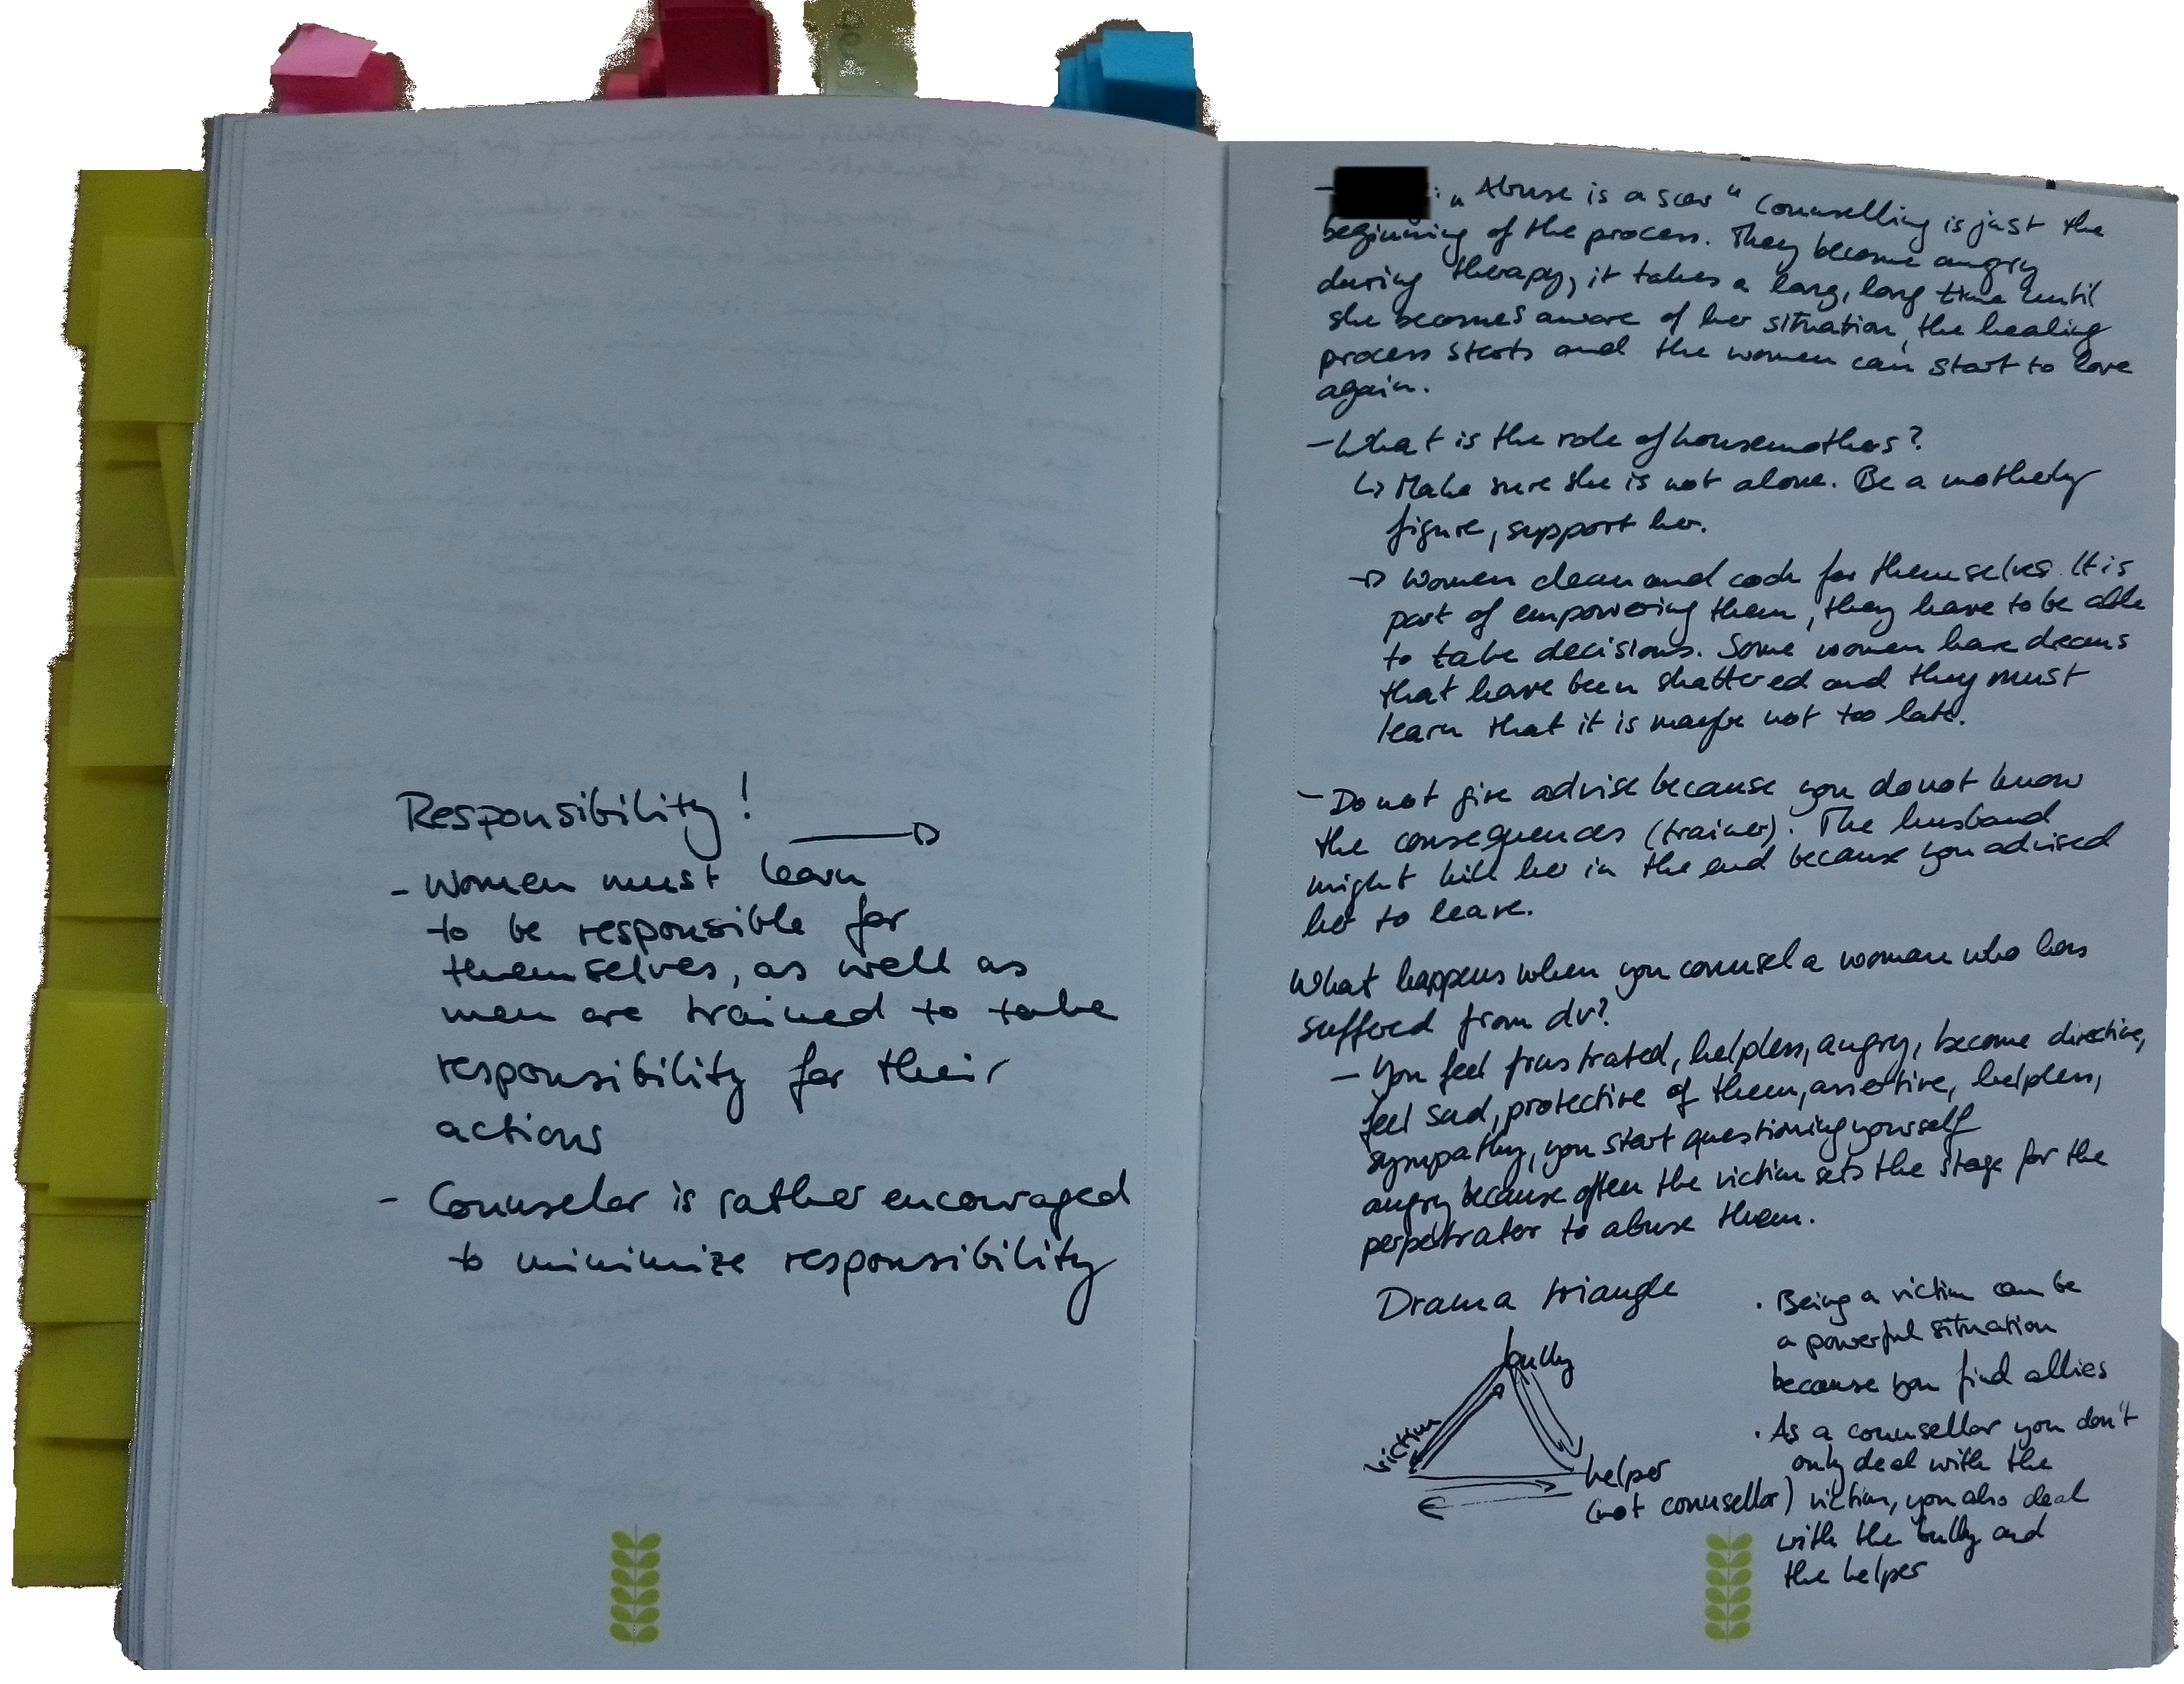 Responsibility!
- Women must learn
to be responsible for
themselves, as well as
men are trained to take
responsibility for their
actions
- Counselor is rather encouraged
to minimize responsibility
- : „Abuse is a scar“ Counselling is just the
beginning of the process. They become angry
during therapy, it takes a long, long time until
she becomes aware of her situation, the healing
process starts and the women can start to love
again.
- What is the role of housemothers?
↳ Make sure she is not alone. Be a motherly
figure, support her.
→ Women clean and cook for themselves. It is
part of empowering them, they have to be able
to take decisions. Some women have dreams
that have been shattered and they must
learn that it is maybe not too late.
- Do not give advise because you do not know
the consequences (trainer). The husband
might kill her in the end because you advised
her to leave.
What happens when you counsel a woman who has
suffered from dv?
- You feel frustrated, helpless, angry, become directive,
feel sad, protective of them, assertive, helpless,
sympathy, you start questioning yourself
angry because often the victim sets the stage for the
perpetrator to abuse them.
Drama triangle
bully
victim
helper
(not counsellor)
· Being a victim can be
a powerful situation
because you find allies
· As a counsellor you don't
only deal with the
victim, you also deal
with the bully and
the helper